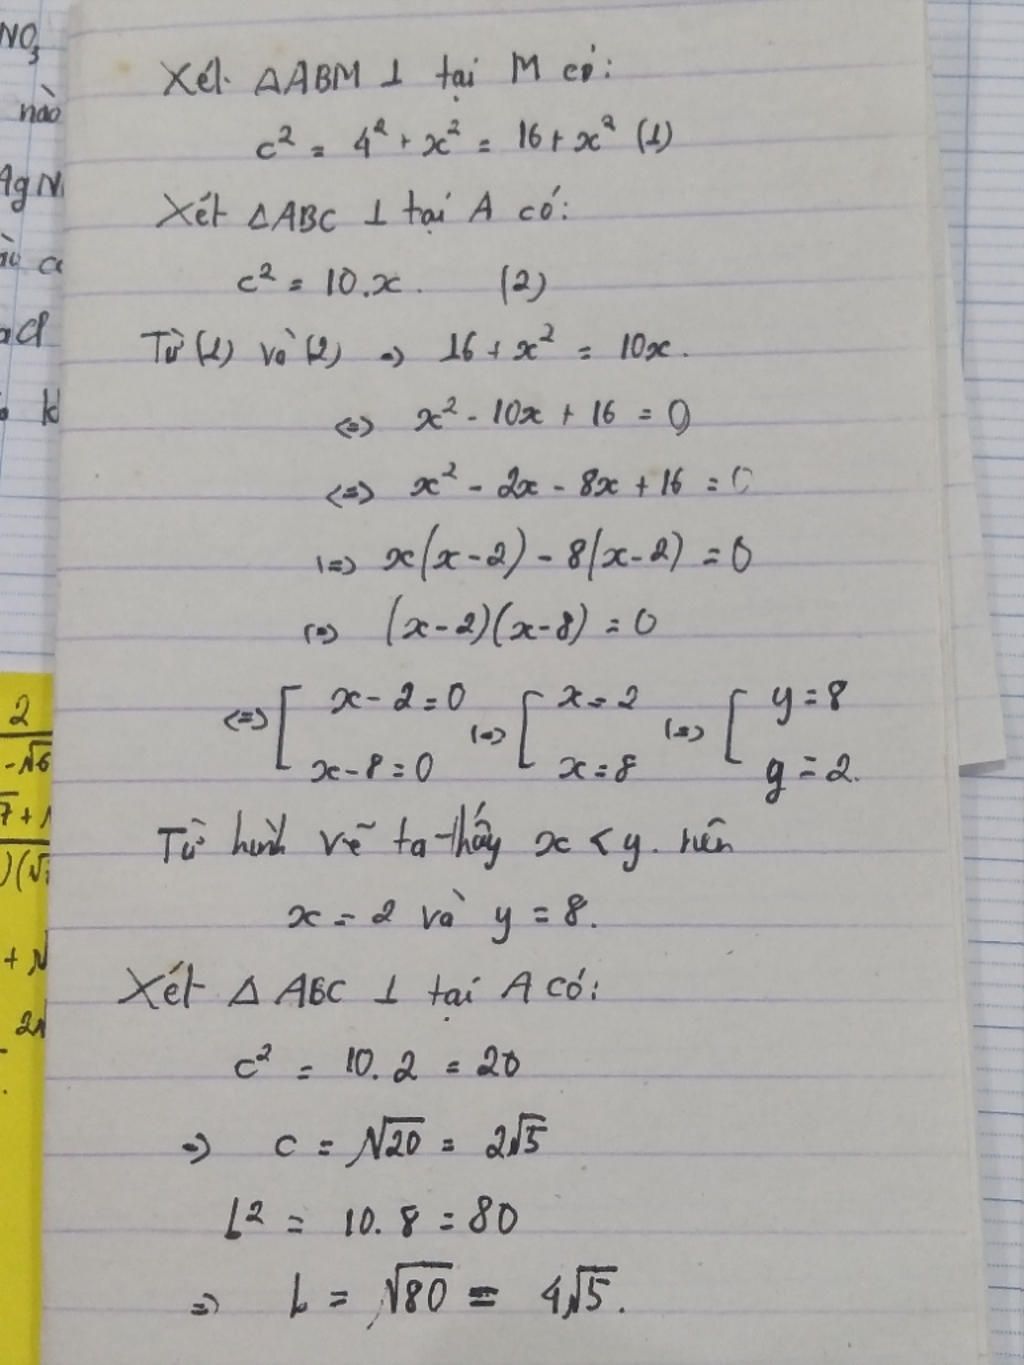 NO3
nào
AgN
aCl
k
2
-√6
√7+
)(√
+ √
2√
Xét ΔABM ⊥ tại M có:
c² = 4² + x² = 16 + x² (1)
Xét ΔABC ⊥ tại A có:
c² = 10.x. (2)
Từ (1) và (2) => 16 + x² = 10x.
<=> x² - 10x + 16 = 0
<=> x² - 2x - 8x + 16 = 0
<=> x(x-2) - 8(x-2) = 0
<=> (x-2)(x-8) = 0
<=> [ x-2=0 <=> [ x=2 <=> [ y=8
x-8=0 x=8 y=2.
Từ hình vẽ ta thấy x < y. nên
x = 2 và y = 8.
Xét Δ ABC ⊥ tại A có:
c² = 10.2 = 20
=> c = √20 = 2√5
b² = 10.8 = 80
=> b = √80 = 4√5.